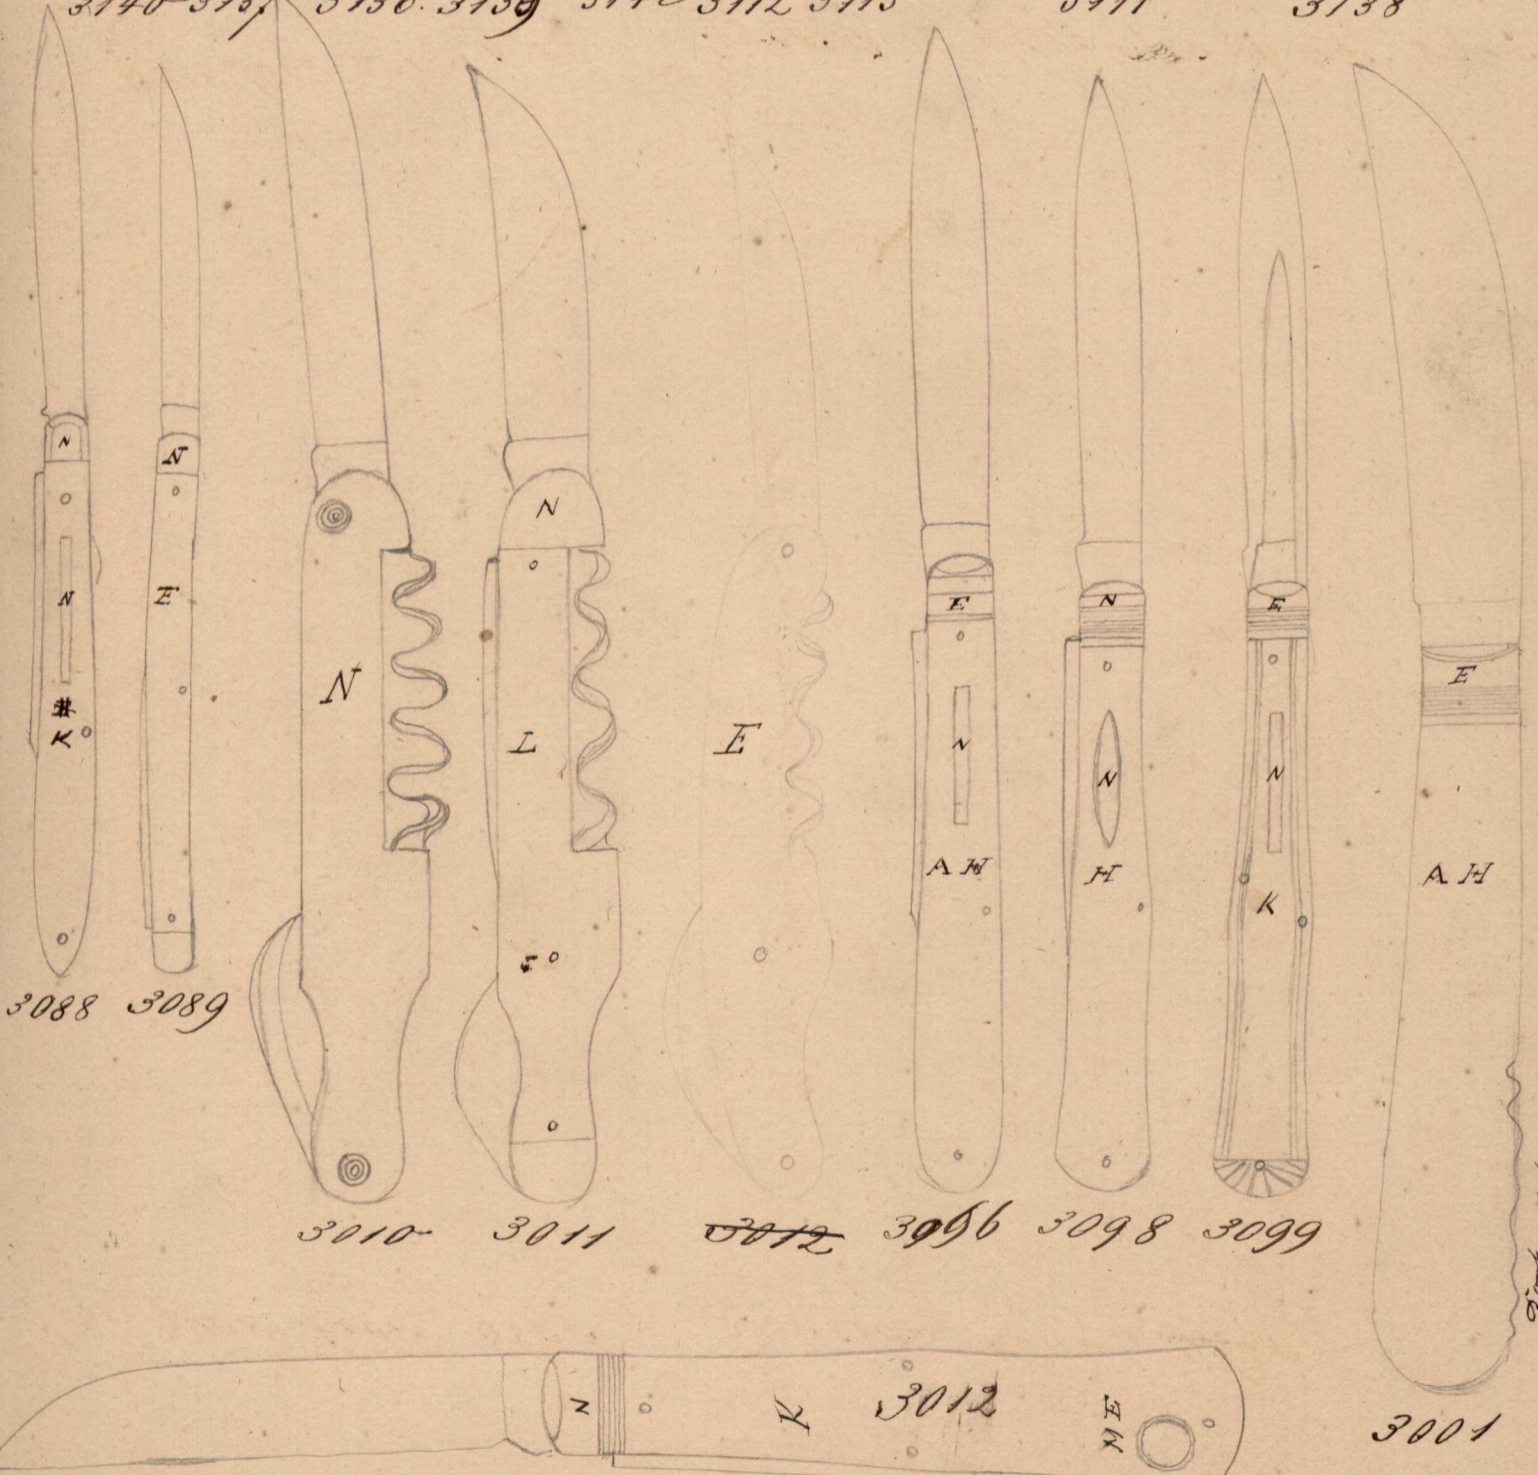 3140 3137 3136. 3139 3112 3113 3111 3138
N
N
N
E
#
K
N
N
L
E
E
N
A H
N
N
H
E
N
K
E
A H
3088 3089
3010 3011 3012 3096 3098 3099
N K 3012 N E
3001